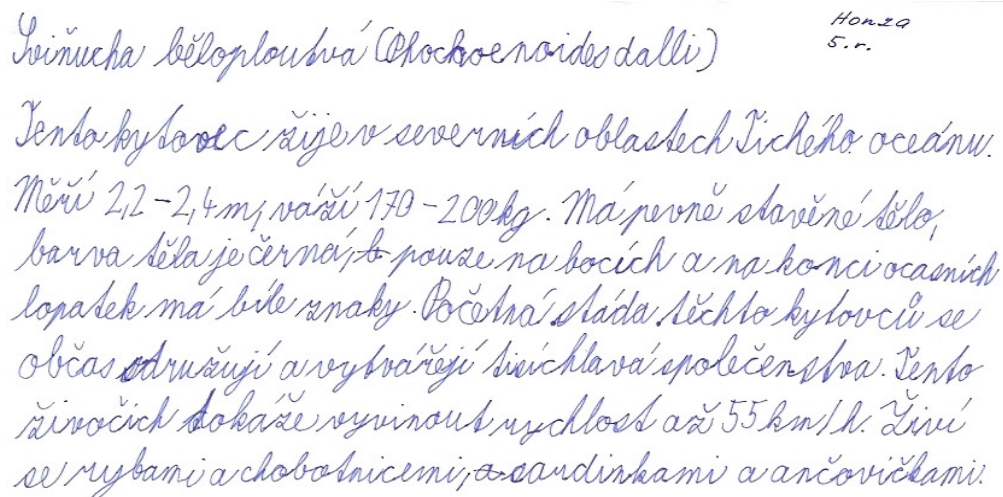 Honza
5.r.
Sviňucha běloploutvá (Phochoenoides dalli)
Tento kytovec žije v severních oblastech Tichého oceánu.
Měří 2,2-2,4m, váží 170-200kg. Má pevně stavěné tělo,
barva těla je černá, pouze na bocích a na konci ocasních
lopatek má bíle znaky. Početná stáda těchto kytovců se
občas sdružují a vytvářejí tisíchlavá společenstva. Tento
živočich dokáže vyvinout rychlost až 55km/h. Živí
se rybami a chobotnicemi, sardinkami a ančovičkami.